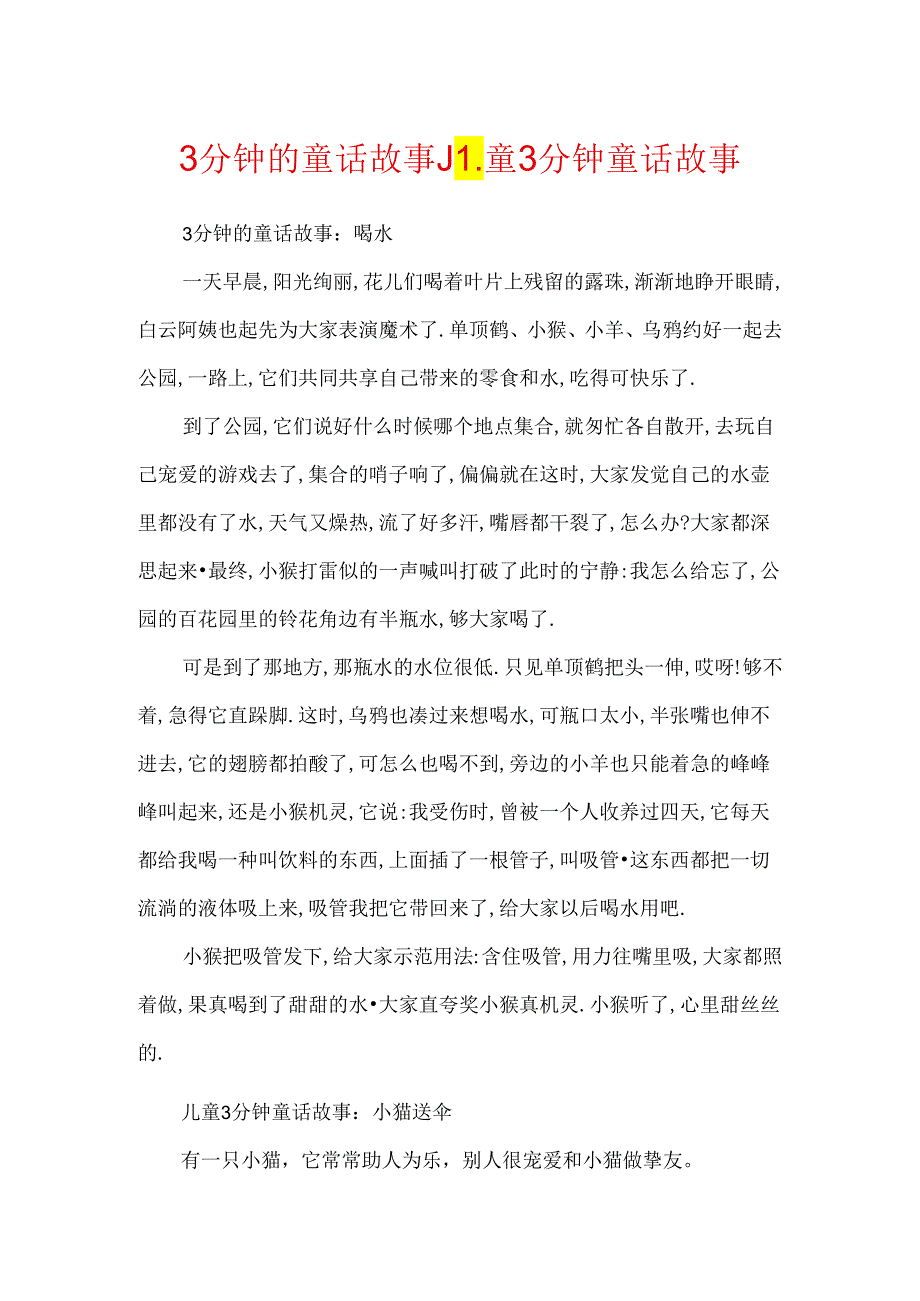 3分钟的童话故事J1.童3分钟童话故事
3分钟的童话故事：喝水
一天早晨,阳光绚丽,花儿们喝着叶片上残留的露珠,渐渐地睁开眼睛,
白云阿姨也起先为大家表演魔术了.单顶鹤、小猴、小羊、乌鸦约好一起去
公园,一路上,它们共同共享自己带来的零食和水,吃得可快乐了.
到了公园,它们说好什么时候哪个地点集合,就匆忙各自散开,去玩自
己宠爱的游戏去了,集合的哨子响了,偏偏就在这时,大家发觉自己的水壶
里都没有了水,天气又燥热,流了好多汗,嘴唇都干裂了,怎么办?大家都深
思起来•最终,小猴打雷似的一声喊叫打破了此时的宁静:我怎么给忘了,公
园的百花园里的铃花角边有半瓶水,够大家喝了.
可是到了那地方,那瓶水的水位很低.只见单顶鹤把头一伸,哎呀!够不
着,急得它直跺脚.这时,乌鸦也凑过来想喝水,可瓶口太小,半张嘴也伸不
进去,它的翅膀都拍酸了,可怎么也喝不到,旁边的小羊也只能着急的峰峰
峰叫起来,还是小猴机灵,它说:我受伤时,曾被一个人收养过四天,它每天
都给我喝一种叫饮料的东西,上面插了一根管子,叫吸管•这东西都把一切
流淌的液体吸上来,吸管我把它带回来了,给大家以后喝水用吧.
小猴把吸管发下,给大家示范用法:含住吸管,用力往嘴里吸,大家都照
着做,果真喝到了甜甜的水•大家直夸奖小猴真机灵.小猴听了,心里甜丝丝
的.
儿童3分钟童话故事：小猫送伞
有一只小猫，它常常助人为乐，别人很宠爱和小猫做挚友。